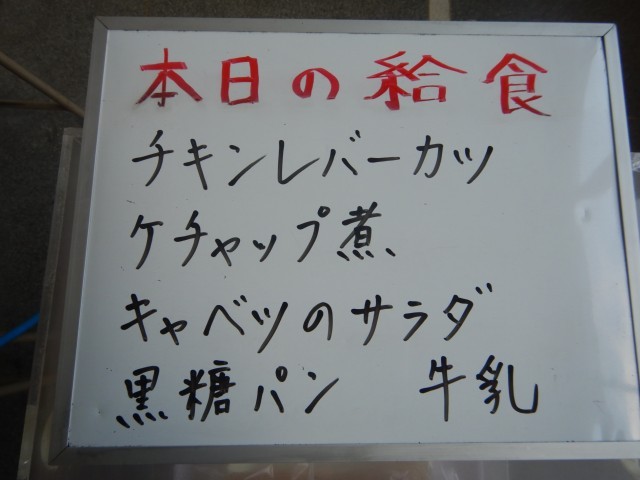 本日の給食
チキンレバーカツ
ケチャップ煮
キャベツのサラダ
黒糖パン 牛乳